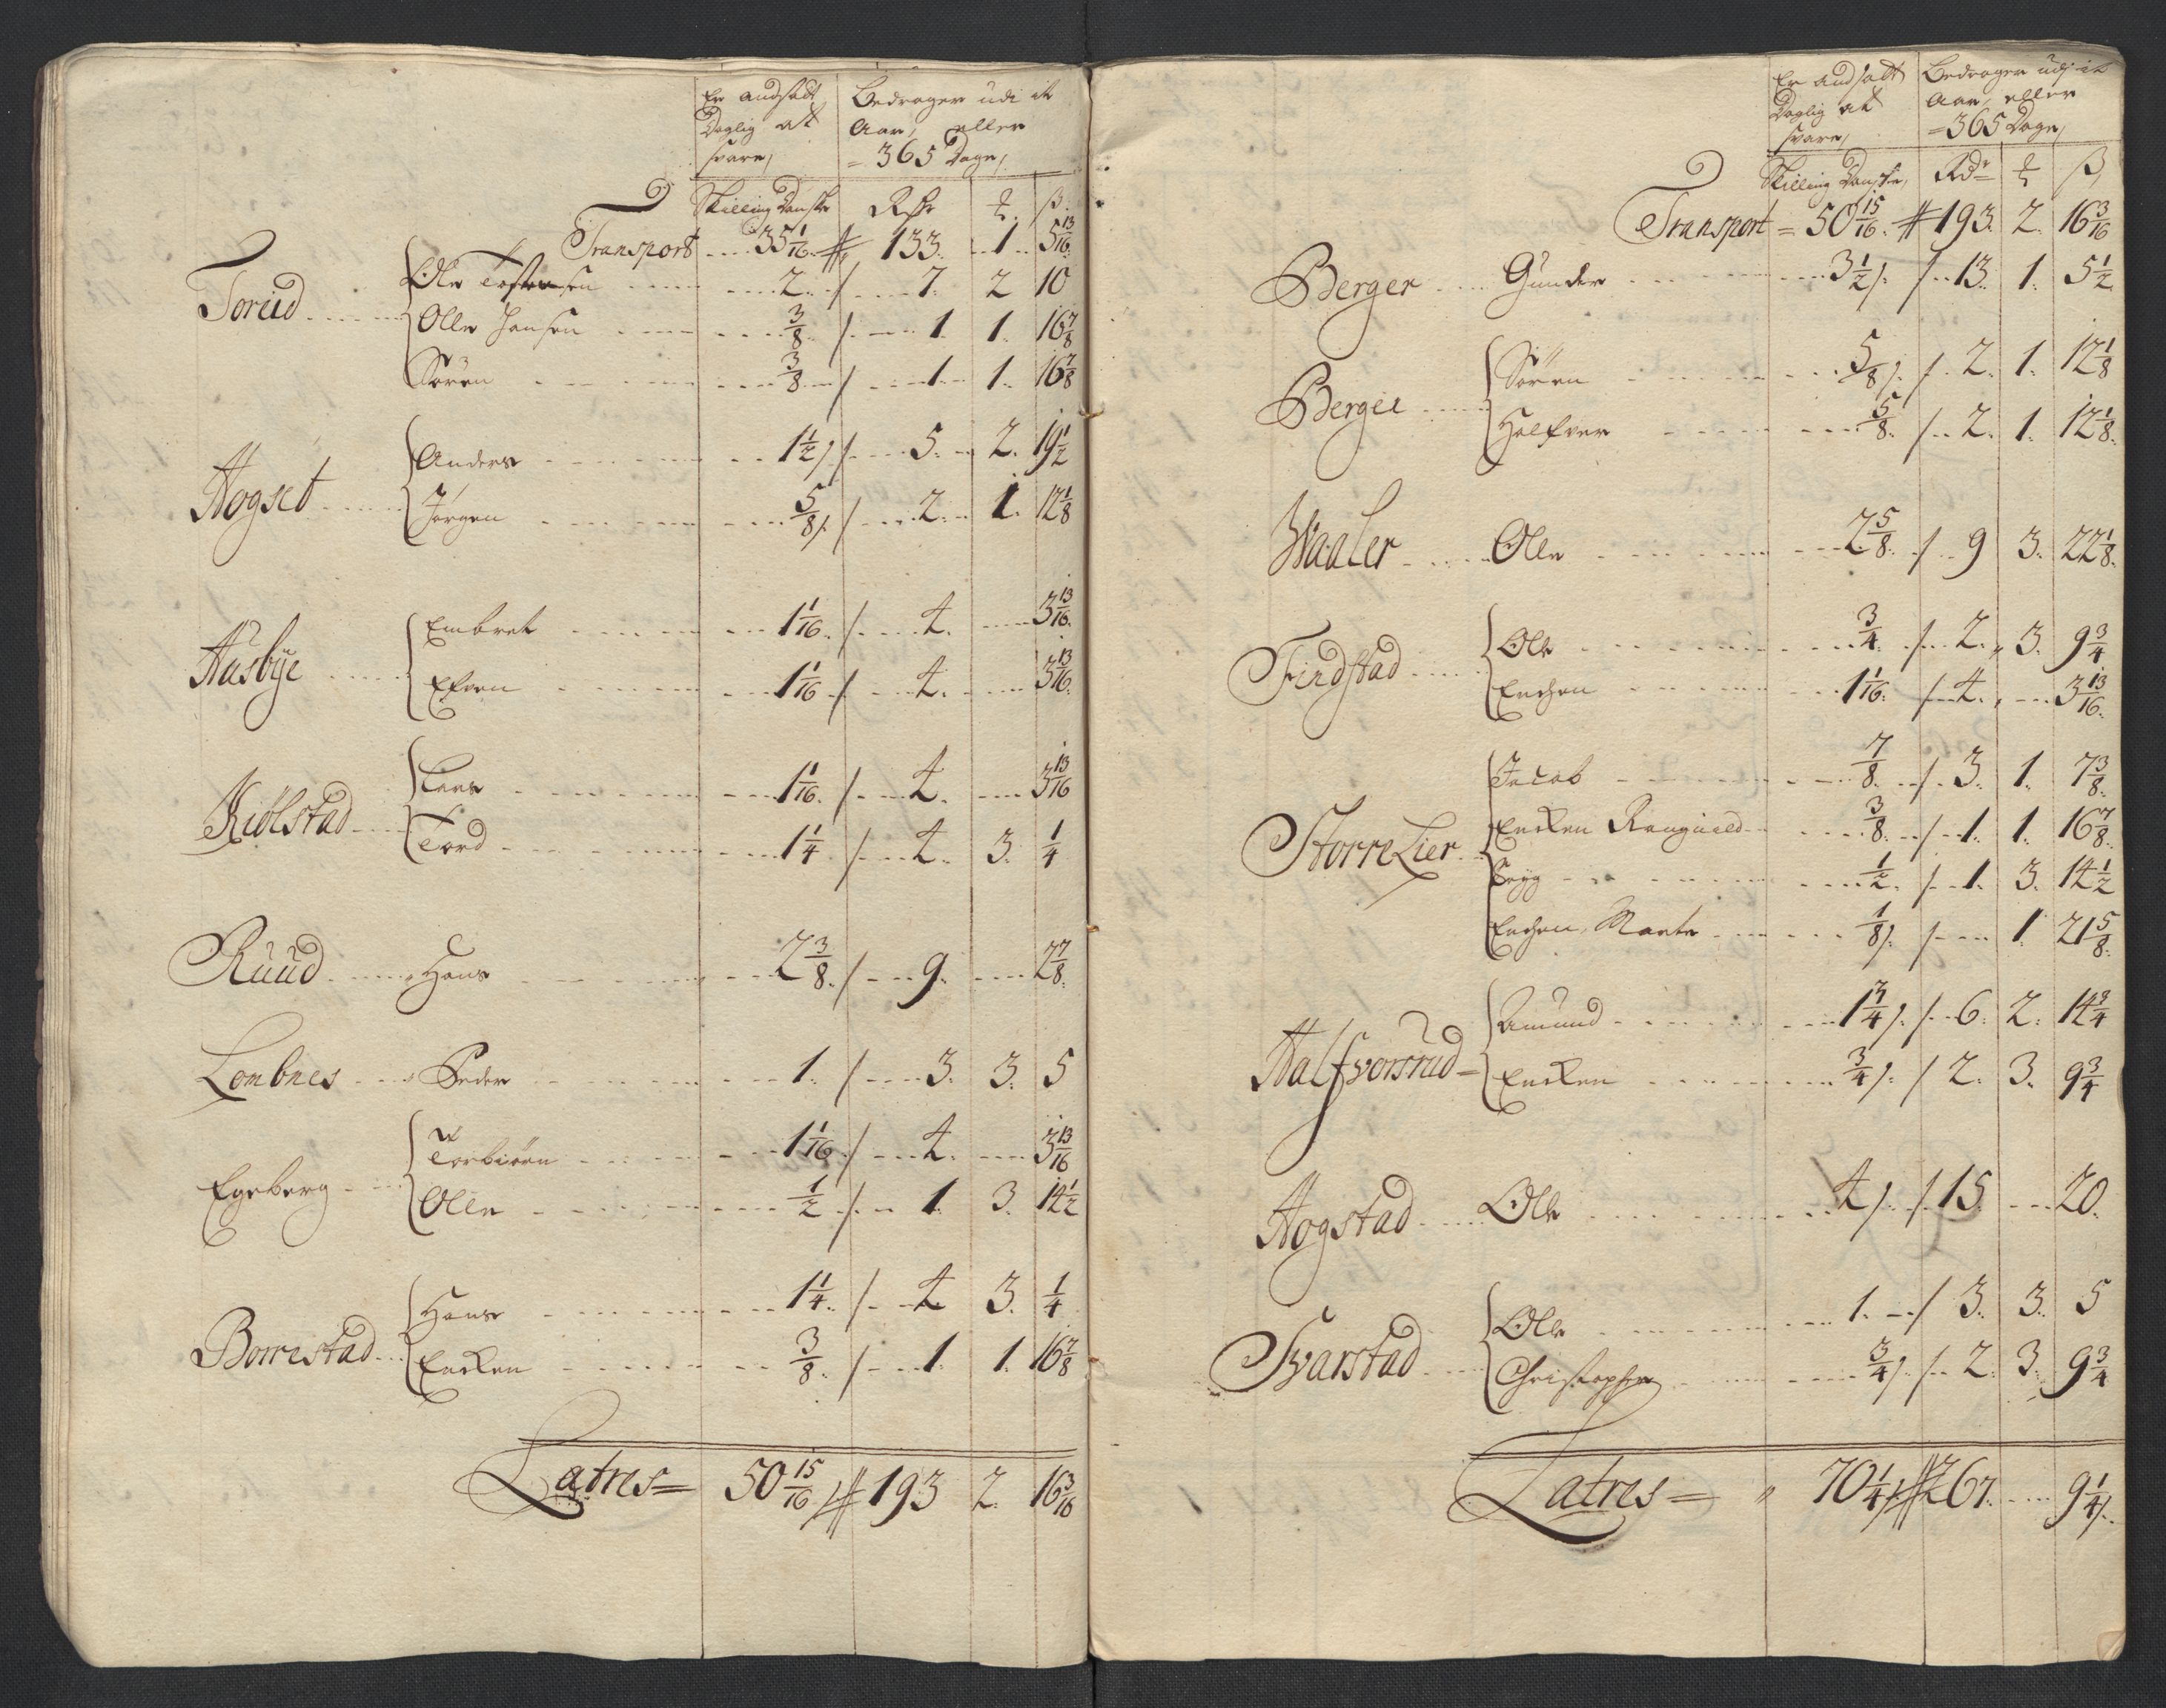 Er andsadt Daglig at svare,
Bedrager udi it Aar, eller =365 Dage,
Skilling Danske Rdr ß.
Transport 35 1/16 133. 1. 5 13/16
Torud Olle Tostensen 2. 7. 2 10
Olle Hansen 3/8 1 1. 16 7/8
Sören 3/8 1 1. 16 7/8
Hogset Anders 1 1/2 5. 2. 19 1/2
Jörgen 5/8 2. 1. 12 1/8
Aasbÿe Embret 1 1/16 4. 3 13/16
Efven 1 1/16 4. 3 13/16
Kiölstad Lars 1 1/16 4. 3 13/16
Tord 1 1/4 4. 3. 1/4
Ruud Hans 2 3/8 9. 2 7/8
Lombnes Peder 1. 3. 3. 5
Egeberg Torbiörn 1 1/16 4. 3 13/16
Olle 1/2 1. 3. 14 1/2
Borrestad Hans 1 1/4 4 3. 1/4
Encken 3/8 1 1. 16 7/8
Latres= 50 15/16 193 2. 16 3/16
Er andsadt Daglig at svare,
Bedrager udi it Aar, eller =365 Dage,
Skilling Danske, Rdr ß,
Transport = 50 15/16 193. 2. 16 3/16
Berger Gunder 3 1/2 13. 1. 5 1/2
Bergee Sören 5/8 2. 1. 12 1/8
Halfver 5/8 2. 1. 12 1/8
Waaler Olle 2 5/8 9 3. 22 1/8
Findstad Ole 3/4 2. 3. 9 3/4
Enchen 1 1/16 4. 3 13/16
Storre Lier Jacob 7/8 3. 1. 7 3/8
Encken Rangnild 3/8 1. 1. 16 7/8
1/2 1. 3. 14 1/2
Enchen Marte 1/8 1 21 5/8
Halfvorsrud= Amund 1 3/4 6. 2. 14 3/4
Encken 3/4 2. 3. 9 3/4
Hogstad Ole 4 15. 20.
Svarstad Ole 1. 3. 3. 5
Christopher 3/4 2. 3. 9 3/4
Latres= 70 1/4 267. 9 1/4